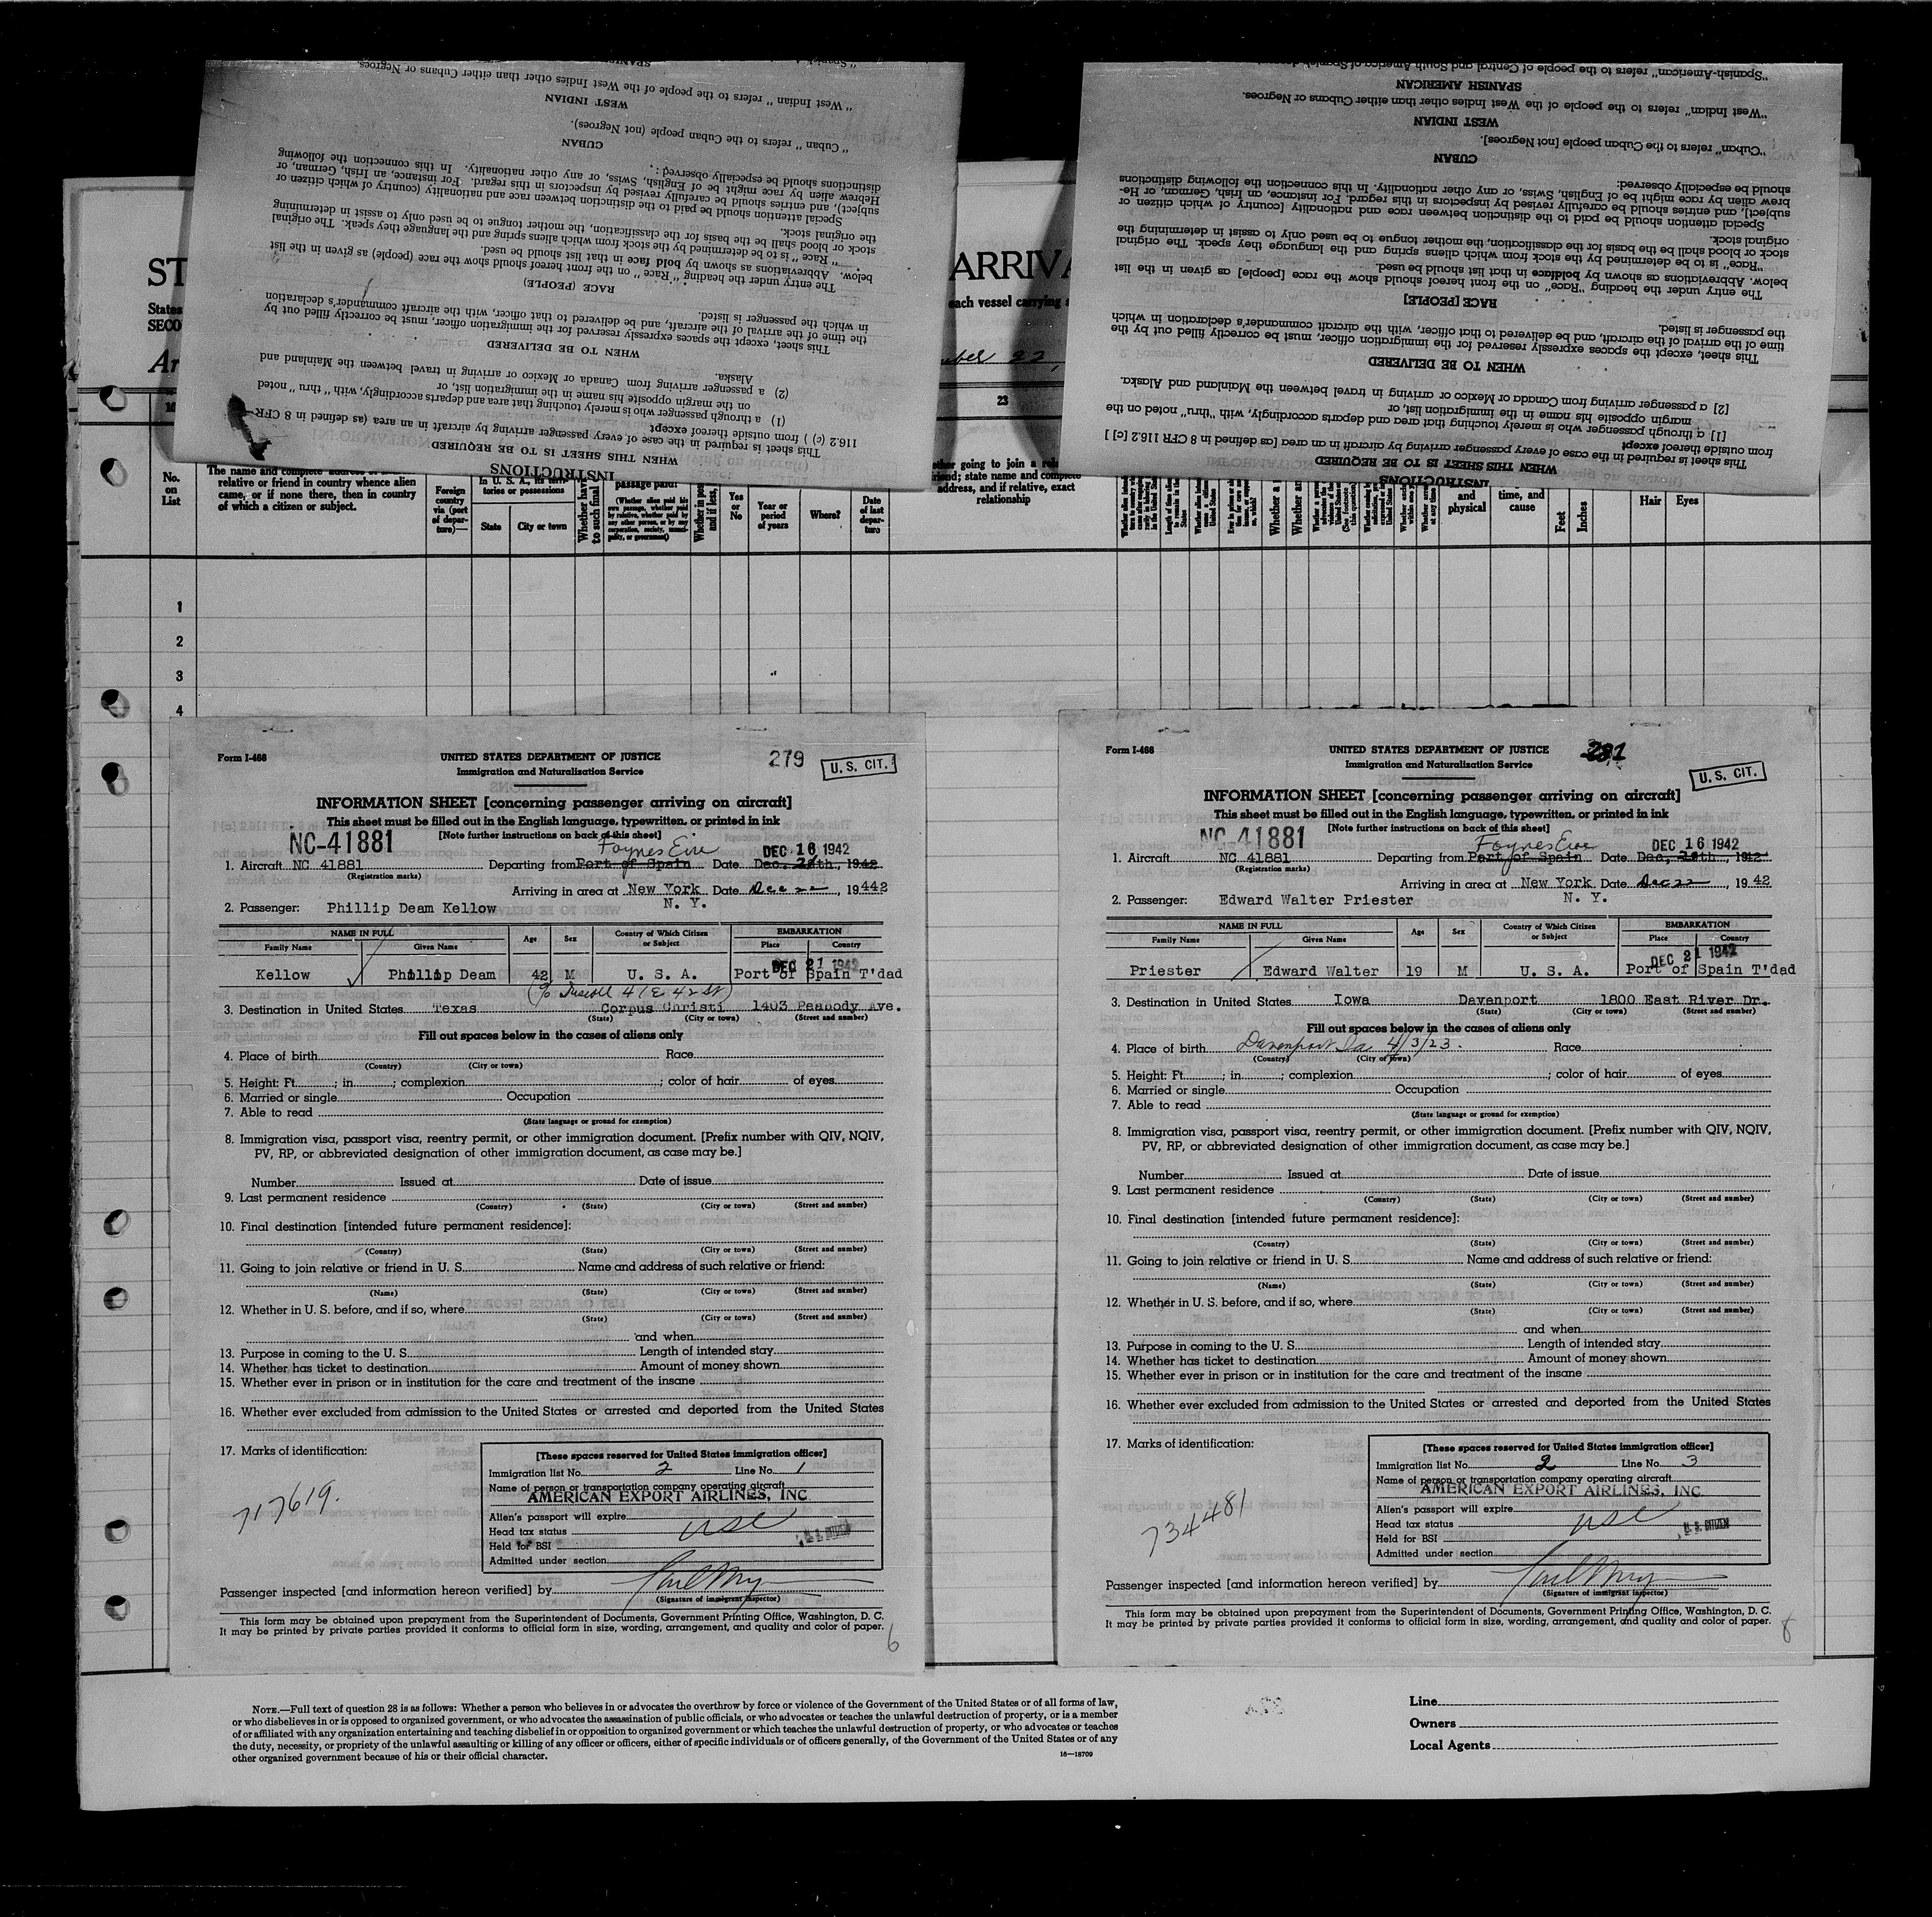 " Spanish
" West Indian " refers to the people of the West Indies other than either Cubans or Negroes.
WEST INDIAN
" Cuban " refers to the Cuban people (not Negroes).
CUBAN
distinctions should be especially observed :
Hebrew alien by race might be of English, Swiss, or any other nationality. In this connection the following
subject), and entries should be carefully revised by inspectors in this regard. For instance, an Irish, German, or
Special attention should be paid to the distinction between race and nationality (country of which citizen or
the original stock.
stock or blood shall be the basis for the classification, the mother tongue to be used only to assist in determining
" Race " is to be determined by the stock from which aliens spring and the language they speak. The original
below. Abbreviations as shown by bold face in that list should be used.
The entry under the heading " Race " on the front hereof should show the race (people) as given in the list
RACE (PEOPLE)
in which the passenger is listed.
the time of the arrival of the aircraft, and be delivered to that officer, with the aircraft commander's declaration
This sheet, except the spaces expressly reserved for the immigration officer, must be correctly filled out by
WHEN TO BE DELIVERED
Alaska.
(2) a passenger arriving from Canada or Mexico or arriving in travel between the Mainland and
on the margin opposite his name in the immigration list, or
(1) a through passenger who is merely touching that area and departs accordingly, with " thru " noted
116.2 (c) ) from outside thereof except
This sheet is required in the case of every passenger arriving by aircraft in an area (as defined in 8 CFR
WHEN THIS SHEET IS TO BE REQUIRED
INSTRUCTIONS
"Spanish-American" refers to the people of Central and South America of Spanish
SPANISH AMERICAN
"West Indian" refers to the people of the West Indies other than either Cubans or Negroes.
WEST INDIAN
"Cuban" refers to the Cuban people [not Negroes].
CUBAN
should be especially observed:
brew alien by race might be of English, Swiss, or any other nationality. In this connection the following distinctions
subject], and entries should be carefully revised by inspectors in this regard. For instance, an Irish, German, or He-
Special attention should be paid to the distinction between race and nationality [country of which citizen or
original stock.
stock or blood shall be the basis for the classification, the mother tongue to be used only to assist in determining the
"Race" is to be determined by the stock from which aliens spring and the language they speak. The original
below. Abbreviations as shown by boldface in that list should be used.
The entry under the heading "Race" on the front hereof should show the race [people] as given in the list
RACE [PEOPLE]
the passenger is listed.
time of the arrival of the aircraft, and be delivered to that officer, with the aircraft commander's declaration in which
This sheet, except the spaces expressly reserved for the immigration officer, must be correctly filled out by the
WHEN TO BE DELIVERED
[2] a passenger arriving from Canada or Mexico or arriving in travel between the Mainland and Alaska.
margin opposite his name in the immigration list, or
[1] a through passenger who is merely touching that area and departs accordingly, with "thru" noted on the
from outside thereof except
This sheet is required in the case of every passenger arriving by aircraft in an area [as defined in 8 CFR 116.2 [c] ]
WHEN THIS SHEET IS TO BE REQUIRED
INSTRUCTIONS
ST
States
SECO
Ar
ARRIVA
each vessel carrying
ber 22,
23
No.
on
List
The name and complete address of
relative or friend in country whence alien
came, or if none there, then in country
of which a citizen or subject.
Foreign
country
via (port
of depar-
ture)—
In U. S. A., its terri-
tories or possessions
State
City or town
passage paid?
(Whether alien paid his
own passage, whether paid
by relative, whether paid by
any other person, or by any
corporation, society, munici-
pality, or government)
Yes
or
No
Year or
period
of years
Where?
Date
of last
depar-
ture
going to join a
friend; state name and complete
address, and if relative, exact
relationship
and
physical
time, and
cause
Feet
Inches
Hair
Eyes
1
2
3
4
Form I-466
UNITED STATES DEPARTMENT OF JUSTICE
279
U. S. CIT.
Immigration and Naturalization Service
INFORMATION SHEET [concerning passenger arriving on aircraft]
This sheet must be filled out in the English language, typewritten, or printed in ink
[Note further instructions on back of this sheet]
NC-41881
Foynes Eire
DEC 16 1942
1. Aircraft NC 41881 Departing from Port of Spain Date Dec. 20th, 1942
(Registration marks)
Arriving in area at New York Date Dec 22, 19442
N. Y.
2. Passenger: Phillip Deam Kellow
NAME IN FULL
Family Name
Given Name
Age
Sex
Country of Which Citizen
or Subject
EMBARKATION
Place
Country
DEC 21 1942
Kellow Phillip Deam 42 M U. S. A. Port of Spain T'dad
41 E 42 St
3. Destination in United States Texas Corpus Christi 1403 Peabody Ave.
(State) (City or town) (Street and number)
Fill out spaces below in the cases of aliens only
4. Place of birth Race
(Country) (City or town)
5. Height: Ft. ; in. ; complexion ; color of hair of eyes
6. Married or single Occupation
7. Able to read
(State language or ground for exemption)
8. Immigration visa, passport visa, reentry permit, or other immigration document. [Prefix number with QIV, NQIV,
PV, RP, or abbreviated designation of other immigration document, as case may be.]
Number Issued at Date of issue
9. Last permanent residence
(Country) (State) (City or town) (Street and number)
10. Final destination [intended future permanent residence]:
(Country) (State) (City or town) (Street and number)
11. Going to join relative or friend in U. S. Name and address of such relative or friend:
(Name) (State) (City or town) (Street and number)
12. Whether in U. S. before, and if so, where
(State) (City or town) (Street and number)
and when
13. Purpose in coming to the U. S. Length of intended stay
14. Whether has ticket to destination Amount of money shown
15. Whether ever in prison or in institution for the care and treatment of the insane
16. Whether ever excluded from admission to the United States or arrested and deported from the United States
17. Marks of identification:
717619.
[These spaces reserved for United States immigration officer]
Immigration list No. 2 Line No. 1
Name of person or transportation company operating aircraft
AMERICAN EXPORT AIRLINES, INC
Alien's passport will expire
Head tax status
usc
U. S. CITIZEN
Held for BSI
Admitted under section
Passenger inspected [and information hereon verified] by
(Signature of immigrant inspector)
This form may be obtained upon prepayment from the Superintendent of Documents, Government Printing Office, Washington, D. C.
It may be printed by private parties provided it conforms to official form in size, wording, arrangement, and quality and color of paper.
6
Form I-466
UNITED STATES DEPARTMENT OF JUSTICE
281
U. S. CIT.
Immigration and Naturalization Service
INFORMATION SHEET [concerning passenger arriving on aircraft]
This sheet must be filled out in the English language, typewritten, or printed in ink
[Note further instructions on back of this sheet]
NC-41881
Foynes Eire
DEC 16 1942
1. Aircraft NC 41881 Departing from Port of Spain Date Dec, 20th, 1942
(Registration marks)
Arriving in area at New York Date Dec 22, 19 42
N. Y.
2. Passenger: Edward Walter Priester
NAME IN FULL
Family Name
Given Name
Age
Sex
Country of Which Citizen
or Subject
EMBARKATION
Place
Country
DEC 21 1942
Priester Edward Walter 19 M U. S. A. Port of Spain T'dad
3. Destination in United States Iowa Davenport 1800 East River Dr.
(State) (City or town) (Street and number)
Fill out spaces below in the cases of aliens only
4. Place of birth Davenport Ia. 4/3/23. Race
(Country) (City or town)
5. Height: Ft. ; in. ; complexion ; color of hair of eyes
6. Married or single Occupation
7. Able to read
(State language or ground for exemption)
8. Immigration visa, passport visa, reentry permit, or other immigration document. [Prefix number with QIV, NQIV,
PV, RP, or abbreviated designation of other immigration document, as case may be.]
Number Issued at Date of issue
9. Last permanent residence
(Country) (State) (City or town) (Street and number)
10. Final destination [intended future permanent residence]:
(Country) (State) (City or town) (Street and number)
11. Going to join relative or friend in U. S. Name and address of such relative or friend:
(Name) (State) (City or town) (Street and number)
12. Whether in U. S. before, and if so, where
(State) (City or town) (Street and number)
and when
13. Purpose in coming to the U. S. Length of intended stay
14. Whether has ticket to destination Amount of money shown
15. Whether ever in prison or in institution for the care and treatment of the insane
16. Whether ever excluded from admission to the United States or arrested and deported from the United States
17. Marks of identification:
734481
[These spaces reserved for United States immigration officer]
Immigration list No. 2 Line No. 3
Name of person or transportation company operating aircraft
AMERICAN EXPORT AIRLINES, INC
Alien's passport will expire
Head tax status
usc
U. S. CITIZEN
Held for BSI
Admitted under section
Passenger inspected [and information hereon verified] by
(Signature of immigrant inspector)
This form may be obtained upon prepayment from the Superintendent of Documents, Government Printing Office, Washington, D. C.
It may be printed by private parties provided it conforms to official form in size, wording, arrangement, and quality and color of paper.
8
NOTE.—Full text of question 28 is as follows: Whether a person who believes in or advocates the overthrow by force or violence of the Government of the United States or of all forms of law,
or who disbelieves in or is opposed to organized government, or who advocates the assassination of public officials, or who advocates or teaches the unlawful destruction of property, or is a member
of or affiliated with any organization entertaining and teaching disbelief in or opposition to organized government or which teaches the unlawful destruction of property, or who advocates or teaches
the duty, necessity, or propriety of the unlawful assaulting or killing of any officer or officers, either of specific individuals or of officers generally, of the Government of the United States or of any
other organized government because of his or their official character.
16—18709
Line
Owners
Local Agents